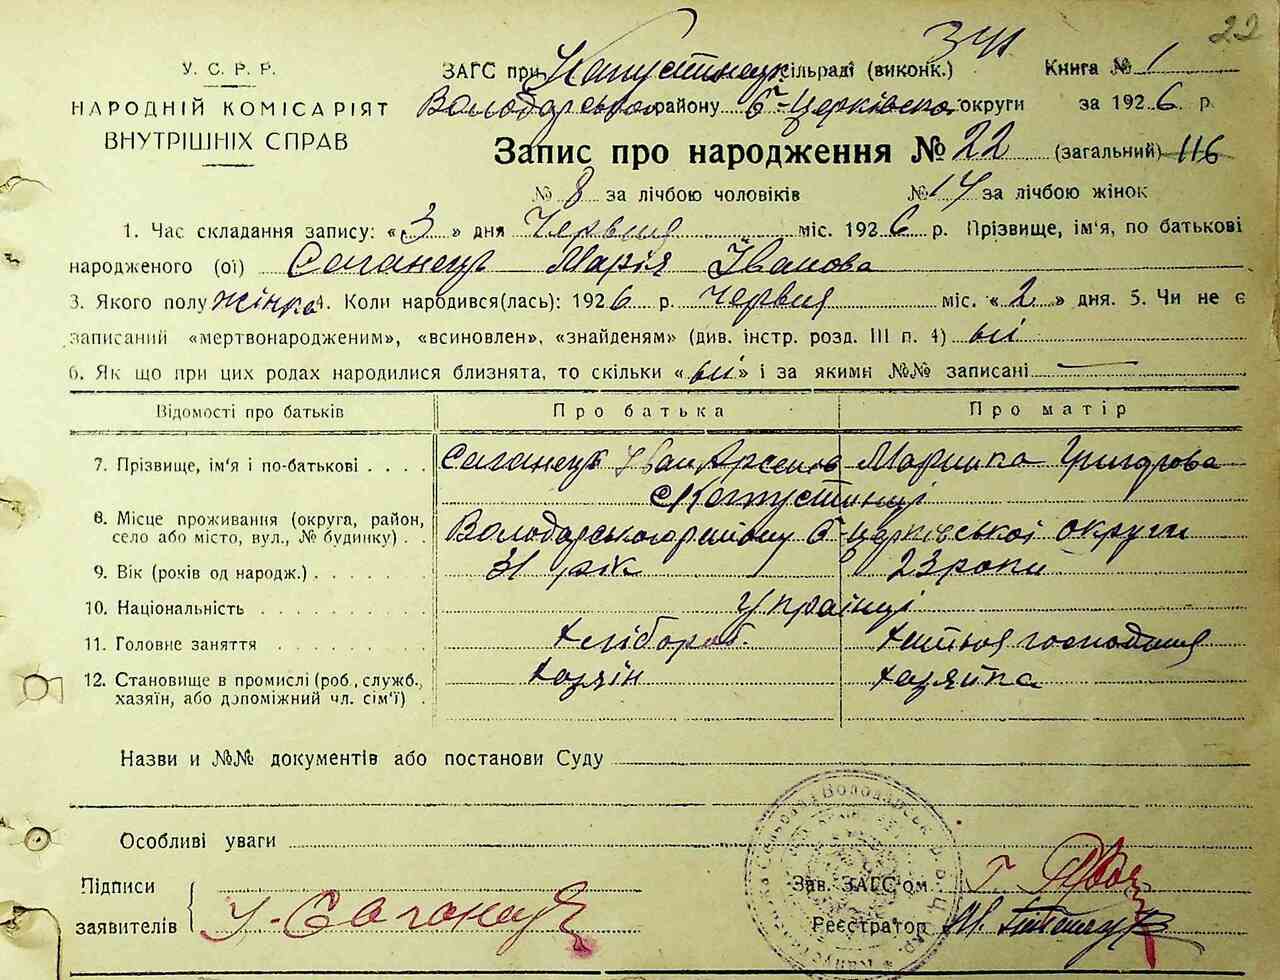 22
341
У. С. Р. Р.
НАРОДНІЙ КОМІСАРІЯТ
ВНУТРІШНІХ СПРАВ
ЗАГС при Капустинецк сільраді (виконк.) Книга № 1
Володарського району Б-Церківсько округи за 1926 р.
Запис про народження № 22 (загальний) 116
№ 8 за лічбою чоловіків № 14 за лічбою жінок
1. Час складання запису: «3» дня Червня міс. 1926 р. Прізвище, ім'я, по батькові
народженого (ої) Саганецьк Марія Іванова
3. Якого полу жінка 4. Коли народився(лась): 1926 р. Червня міс. «2» дня. 5. Чи не є
записаний «мертвонародженим», «всиновлен», «знайденям» (див. інстр. розд. III п. 4) ні
6. Як що при цих родах народилися близнята, то скільки «ні» і за якими №№ записані —
Відомості про батьків Про батька Про матір
7. Прізвище, ім'я і по-батькові Саганецьк Іван Арсенов Маринка Григорова
с Капустинці
8. Місце проживання (округа, район,
село або місто, вул., № будинку) Володарського району Б-Церківської округи
9. Вік (років од народж.) 31 рік 23 роки
10. Національність Українці
11. Головне заняття хлібороб. хатня господиня
12. Становище в промислі (роб., служб., хазяїн хазяйка
хазяїн, або допоміжний чл. сім'ї)
Назви и №№ документів або постанови Суду
Особливі уваги
Підписи
заявителів
Зав. ЗАГС'ом
Реєстратор